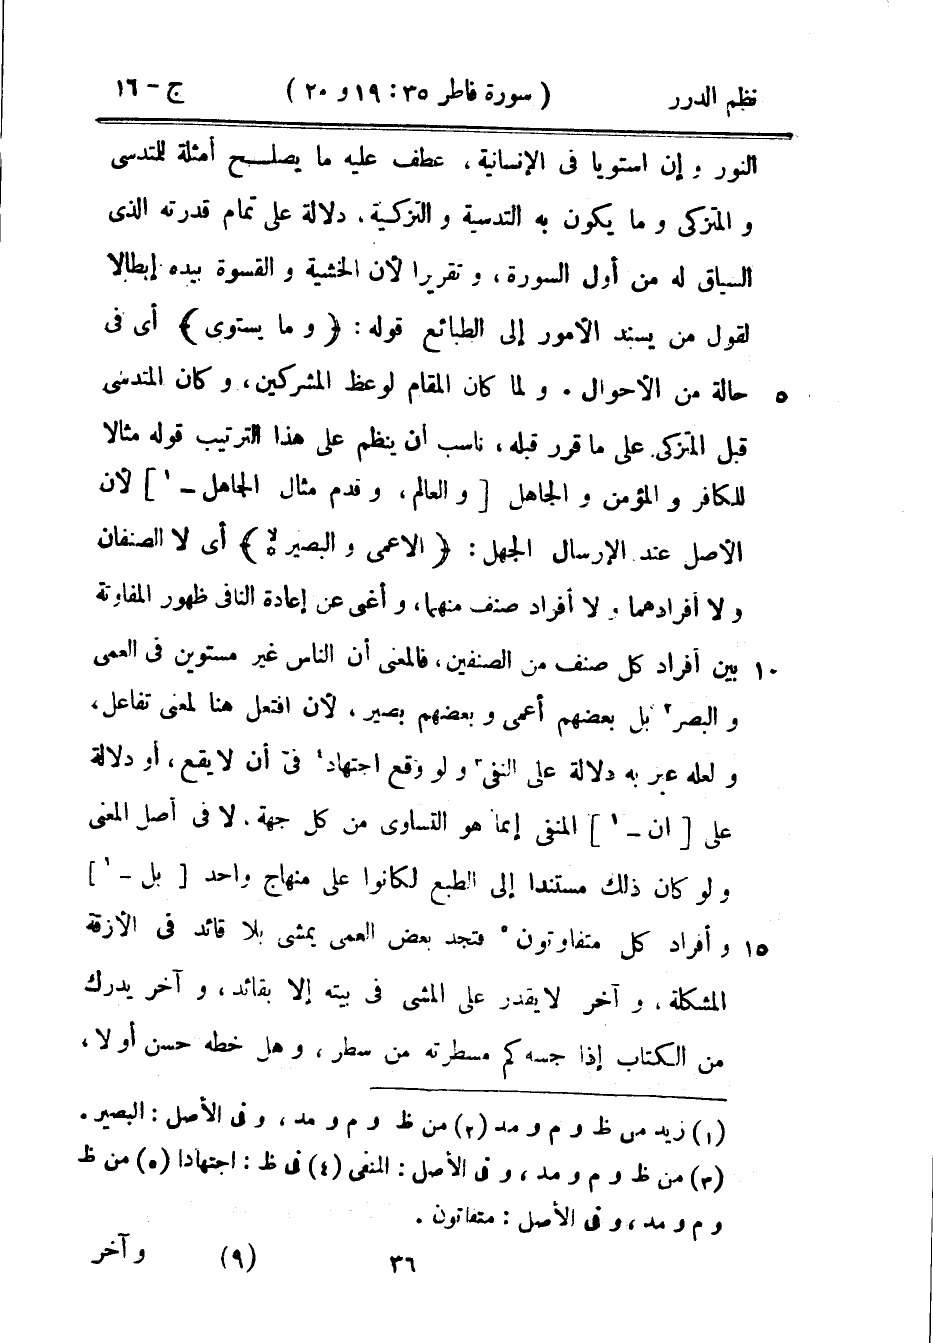 نظم الدرر ( سورة فاطر ٣٥ : ١٩ و ٢٠ ) ج - ١٦
النور و إن استويا فى الإنسانية ، عطف عليه ما يصلح أمثلة للتدسى
و المتزكى و ما يكون به التدسية و التزكية ، دلالة على تمام قدرته الذى
السياق له من أول السورة ، و تقريرا لأن الخشية و القسوة بيده إبطالا
لقول من يسند الأمور إلى الطبائع قوله : ﴿ و ما يستوى ﴾ أى فى
٥ حالة من الأحوال . و لما كان المقام لوعظ المشركين ، و كان المتدسى
قبل المتزكى على ما قرر قبله ، ناسب أن ينظم على هذا الترتيب قوله مثالا
للكافر و المؤمن و الجاهل [ و العالم ، و قدم مثال الجاهل - ١ ] لأن
الأصل عند الإرسال الجهل : ﴿ الاعمى و البصير ۙ ﴾ أى لا الصنفان
و لا أفرادهما و لا أفراد صنف منهما ، و أغنى عن إعادة النافى ظهور المفاوتة
١٠ بين أفراد كل صنف من الصنفين ، فالمعنى أن الناس غير مستوين فى العمى
و البصر ٢ بل بعضهم أعمى و بعضهم بصير ، لأن افتعل هنا لمعنى تفاعل ،
و لعله عبر به دلالة على النفى ٣ و لو وقع اجتهاد ٤ فى أن لا يقع ، أو دلالة
على [ ان - ١ ] المنفى إنما هو التساوى من كل جهة . لا فى أصل المعنى
و لو كان ذلك مستندا إلى الطبع لكانوا على منهاج واحد [ بل - ١ ]
١٥ و أفراد كل متفاوتون ٥ فتجد بعض العمى يمشى بلا قائد فى الأزقة
المشكلة ، و آخر لا يقدر على المشى فى بيته إلا بقائد ، و آخر يدرك
من الكتاب إذا جسه كم مسطرته من سطر ، و هل خطه حسن أو لا ،
(١) زيد من ظ و م و مد (٢) من ظ و م و مد ، و فى الأصل : البصير .
(٣) من ظ و م و مد ، و فى الأصل : المنفى (٤) فى ظ : اجتهادا (٥) من ظ
و م و مد ، و فى الأصل : متفاتون .
٣٦ (٩) و آخر